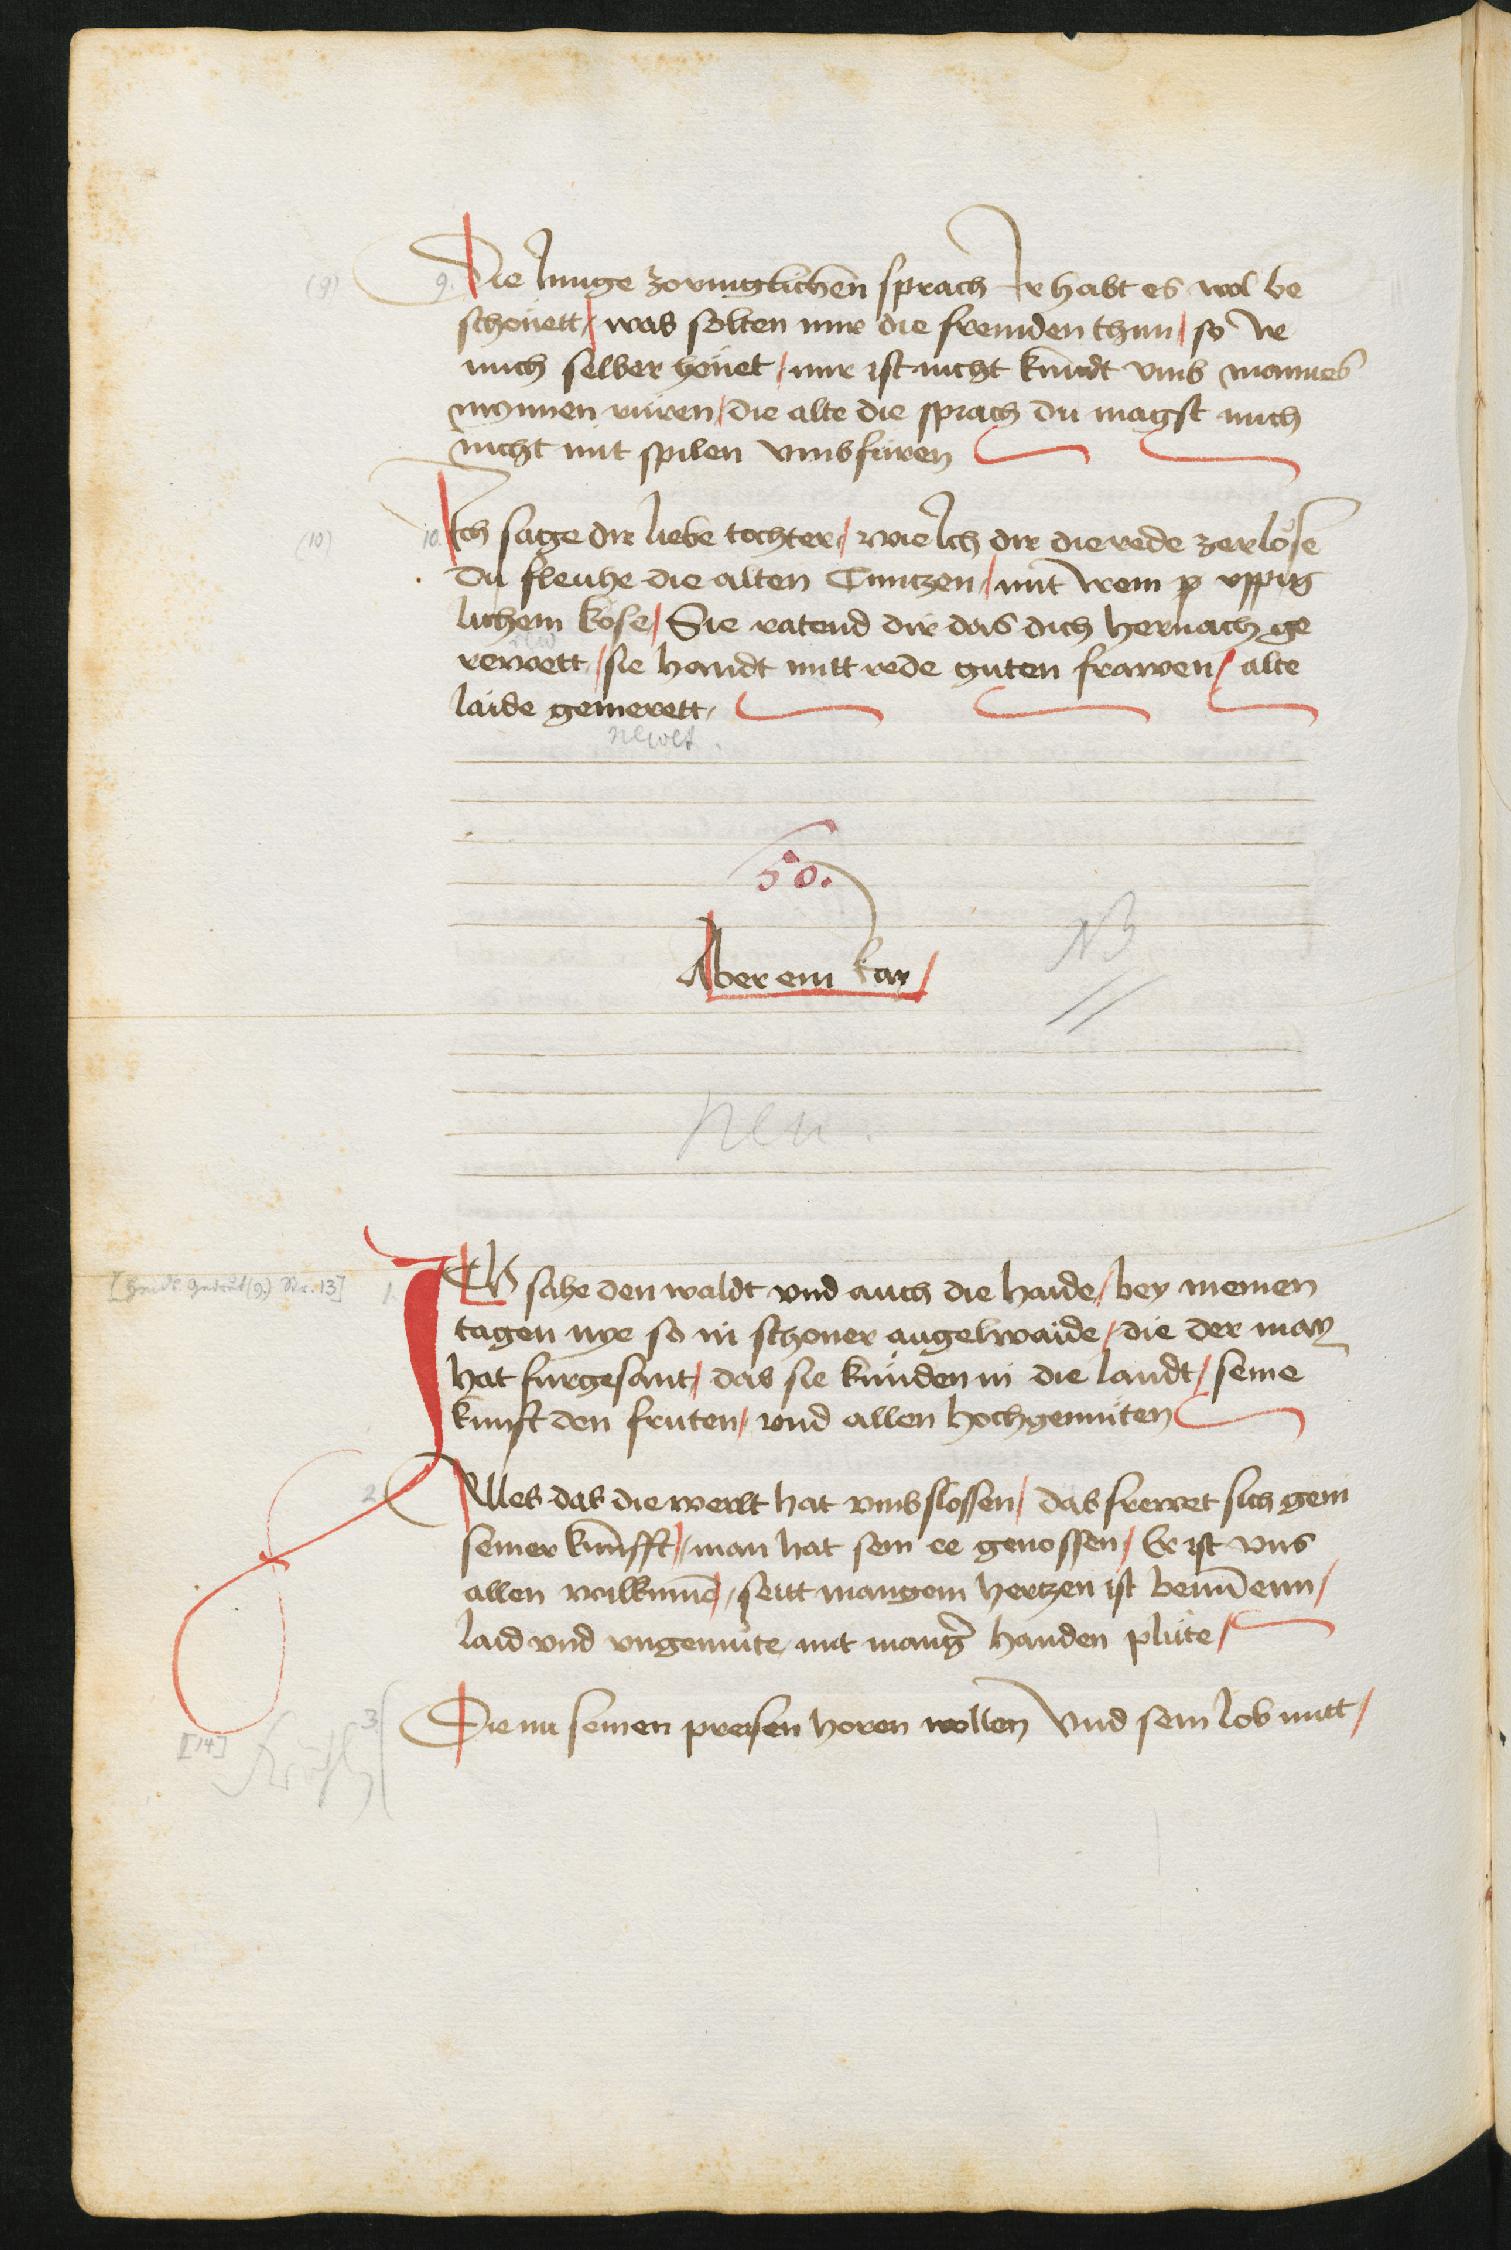 (9) 9. Die Junge zorniglichen sprach Ir habt es wol be
schönett / was solten mir die fremden thun / so Ir
mich selber hönet / mir ist nicht kundt vmb mannes
mynnen rüren / die alte die sprach du magst mich
nicht mit spilen vmbfüren
(10) 10. Ich sage dir liebe tochter / wie Ich dir die rede zerlöse
Du fleuhe die alten Cuntzen / mit Irem üppig
lichem köse / Sie ratend dir das dich hernach ge
rewett / sie handt mitt rede guten frawen / alte
laide gemerett
newet.
50.
Aber ein Ray
NB
neu.
[Heidb. Gedruckt (9.) Nr. 13] 1. Ich sahe den waldt vnd auch die haide / bey meinen
tagen nye so in schoner augelwaide / die der may
hat fürgesant / das sie künden in die landt / seine
kunft den fruten / vnd allen hochgemüten
2. Alles das die werlt hat vmbslossen / das frewet sich gein
seiner kunfft / man hat sein ee genossen / Er ist vns
allen willkumē / seitt mangem hertzen ist benūmenn /
laid vnd vngemüte mit mang̃ handen plüte /
3. Die nu seinen preisen horen wollen Vnd sein lob mitt /
[14]